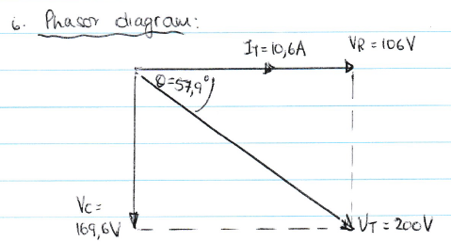 i. Phasor diagram:
IT=10,6A
VR = 106V
θ=57,9°
VC=
169,6V
VT = 200V